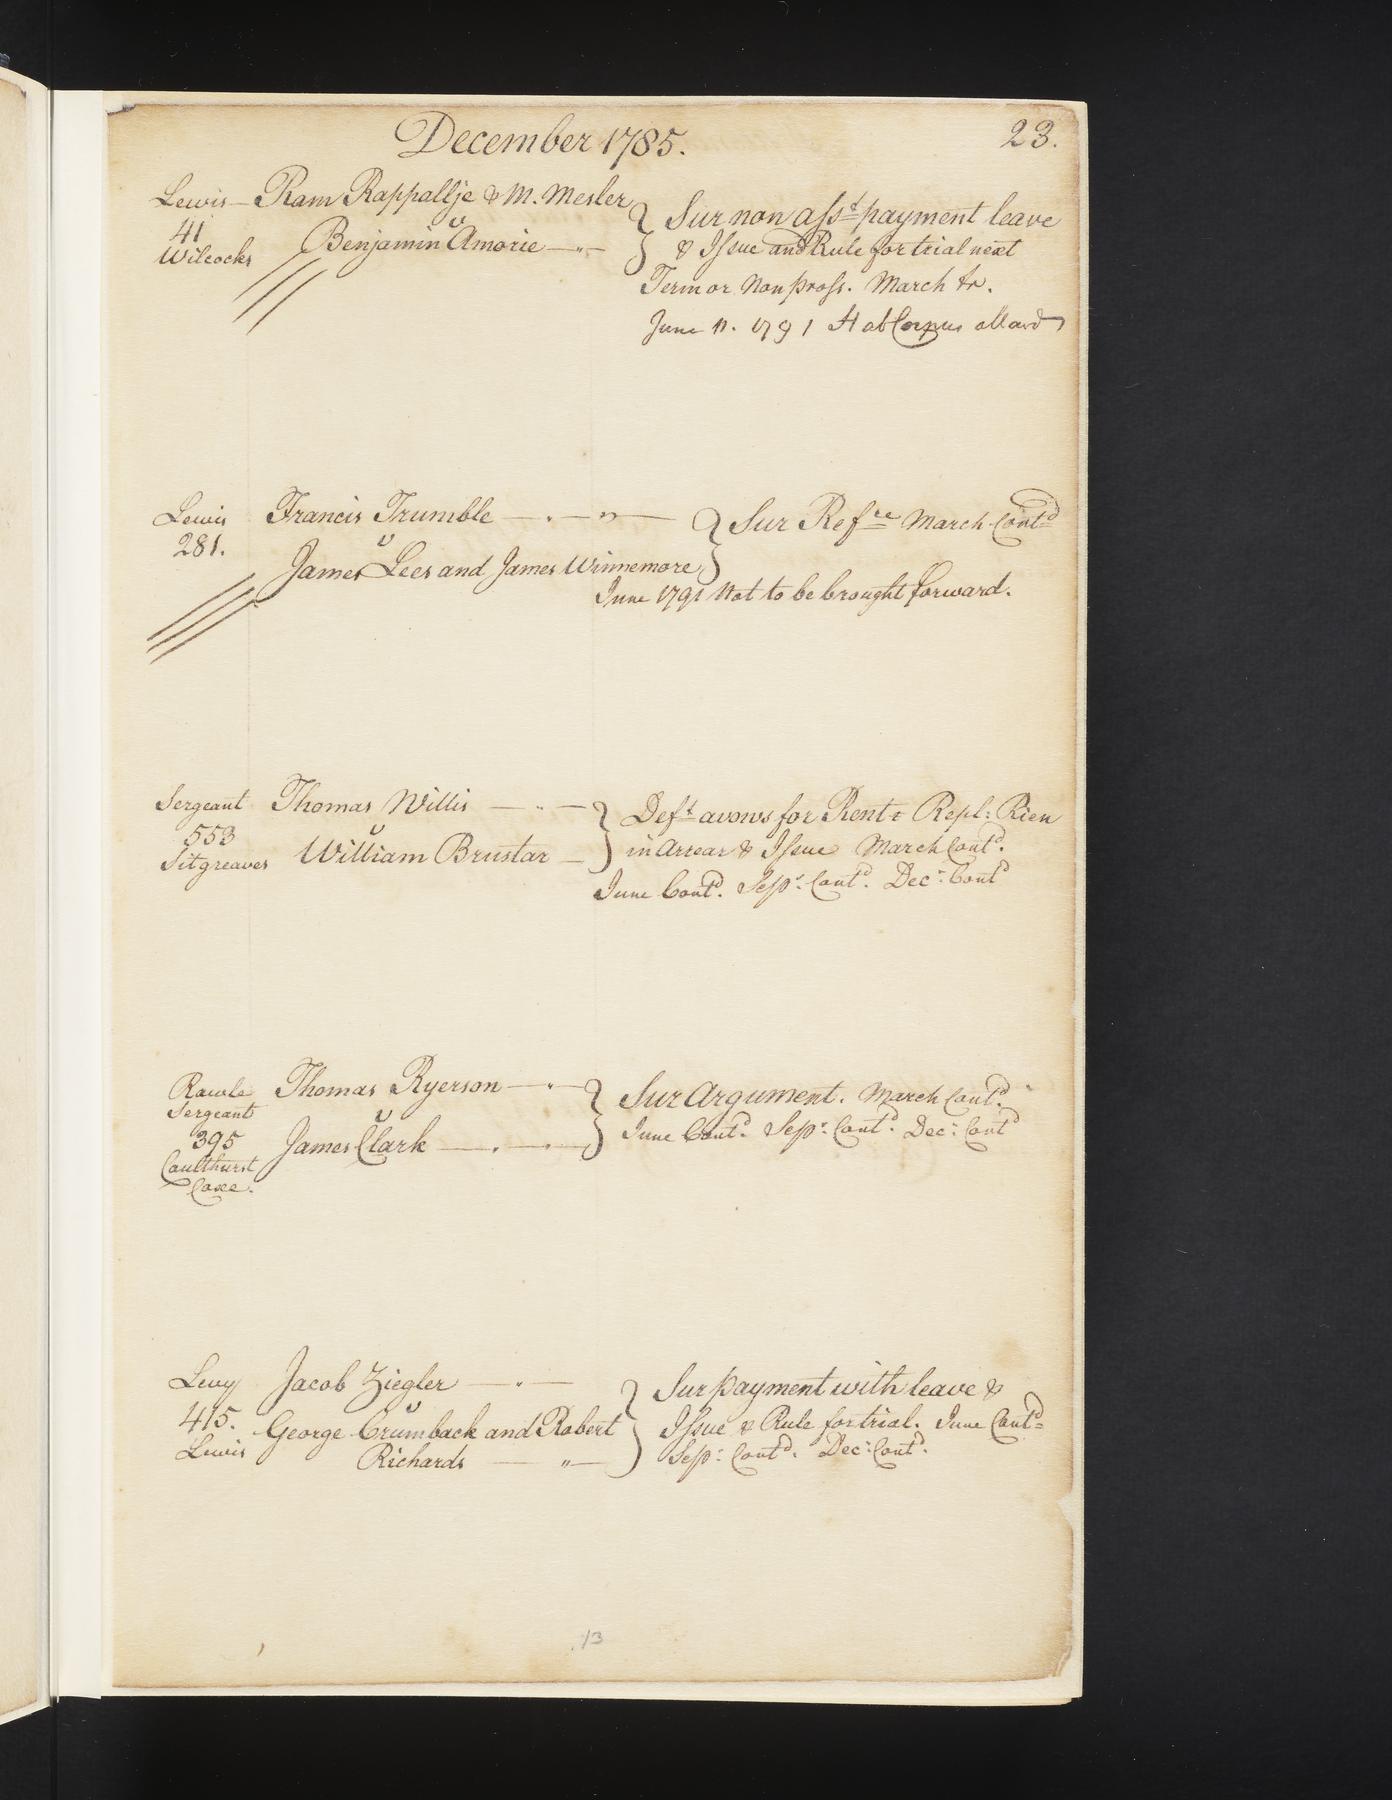 December 1785.
23.
Lewis — Ram Rappallje & M. Mesler
41
v
Wilcocks
Benjamin Amorie —〃—
Sur non Asst payment leave
& Issue and Rule for trial next
Term or Non pross. March tr.
June 11. 1791 Hab Corpus allowd
Lewis Francis Trumble
281.
v
James Lees and James Winnemore
Sur Refce March Contd
June 1791 Not to be brought forward.
Sergeant Thomas Willis
553
v
Sitgreaves William Brustar
Deft avows for Rent & Repl: Rien
in Arrear & Issue March Contd.
June Contd. Sepr. Contd. Decr. Contd
Rawle Thomas Ryerson
Sergeant
v
395 James Clark
Caulthurst
Coxe.
Sur Argument. March Contd.
June Contd. Sepr. Contd. Decr. Contd
Levy Jacob Ziegler
v
415. George Crumback and Robert
Lewis Richards
Sur payment with leave &
Issue & Rule for trial. June Contd
Sepr. Contd. Decr. Contd.
13